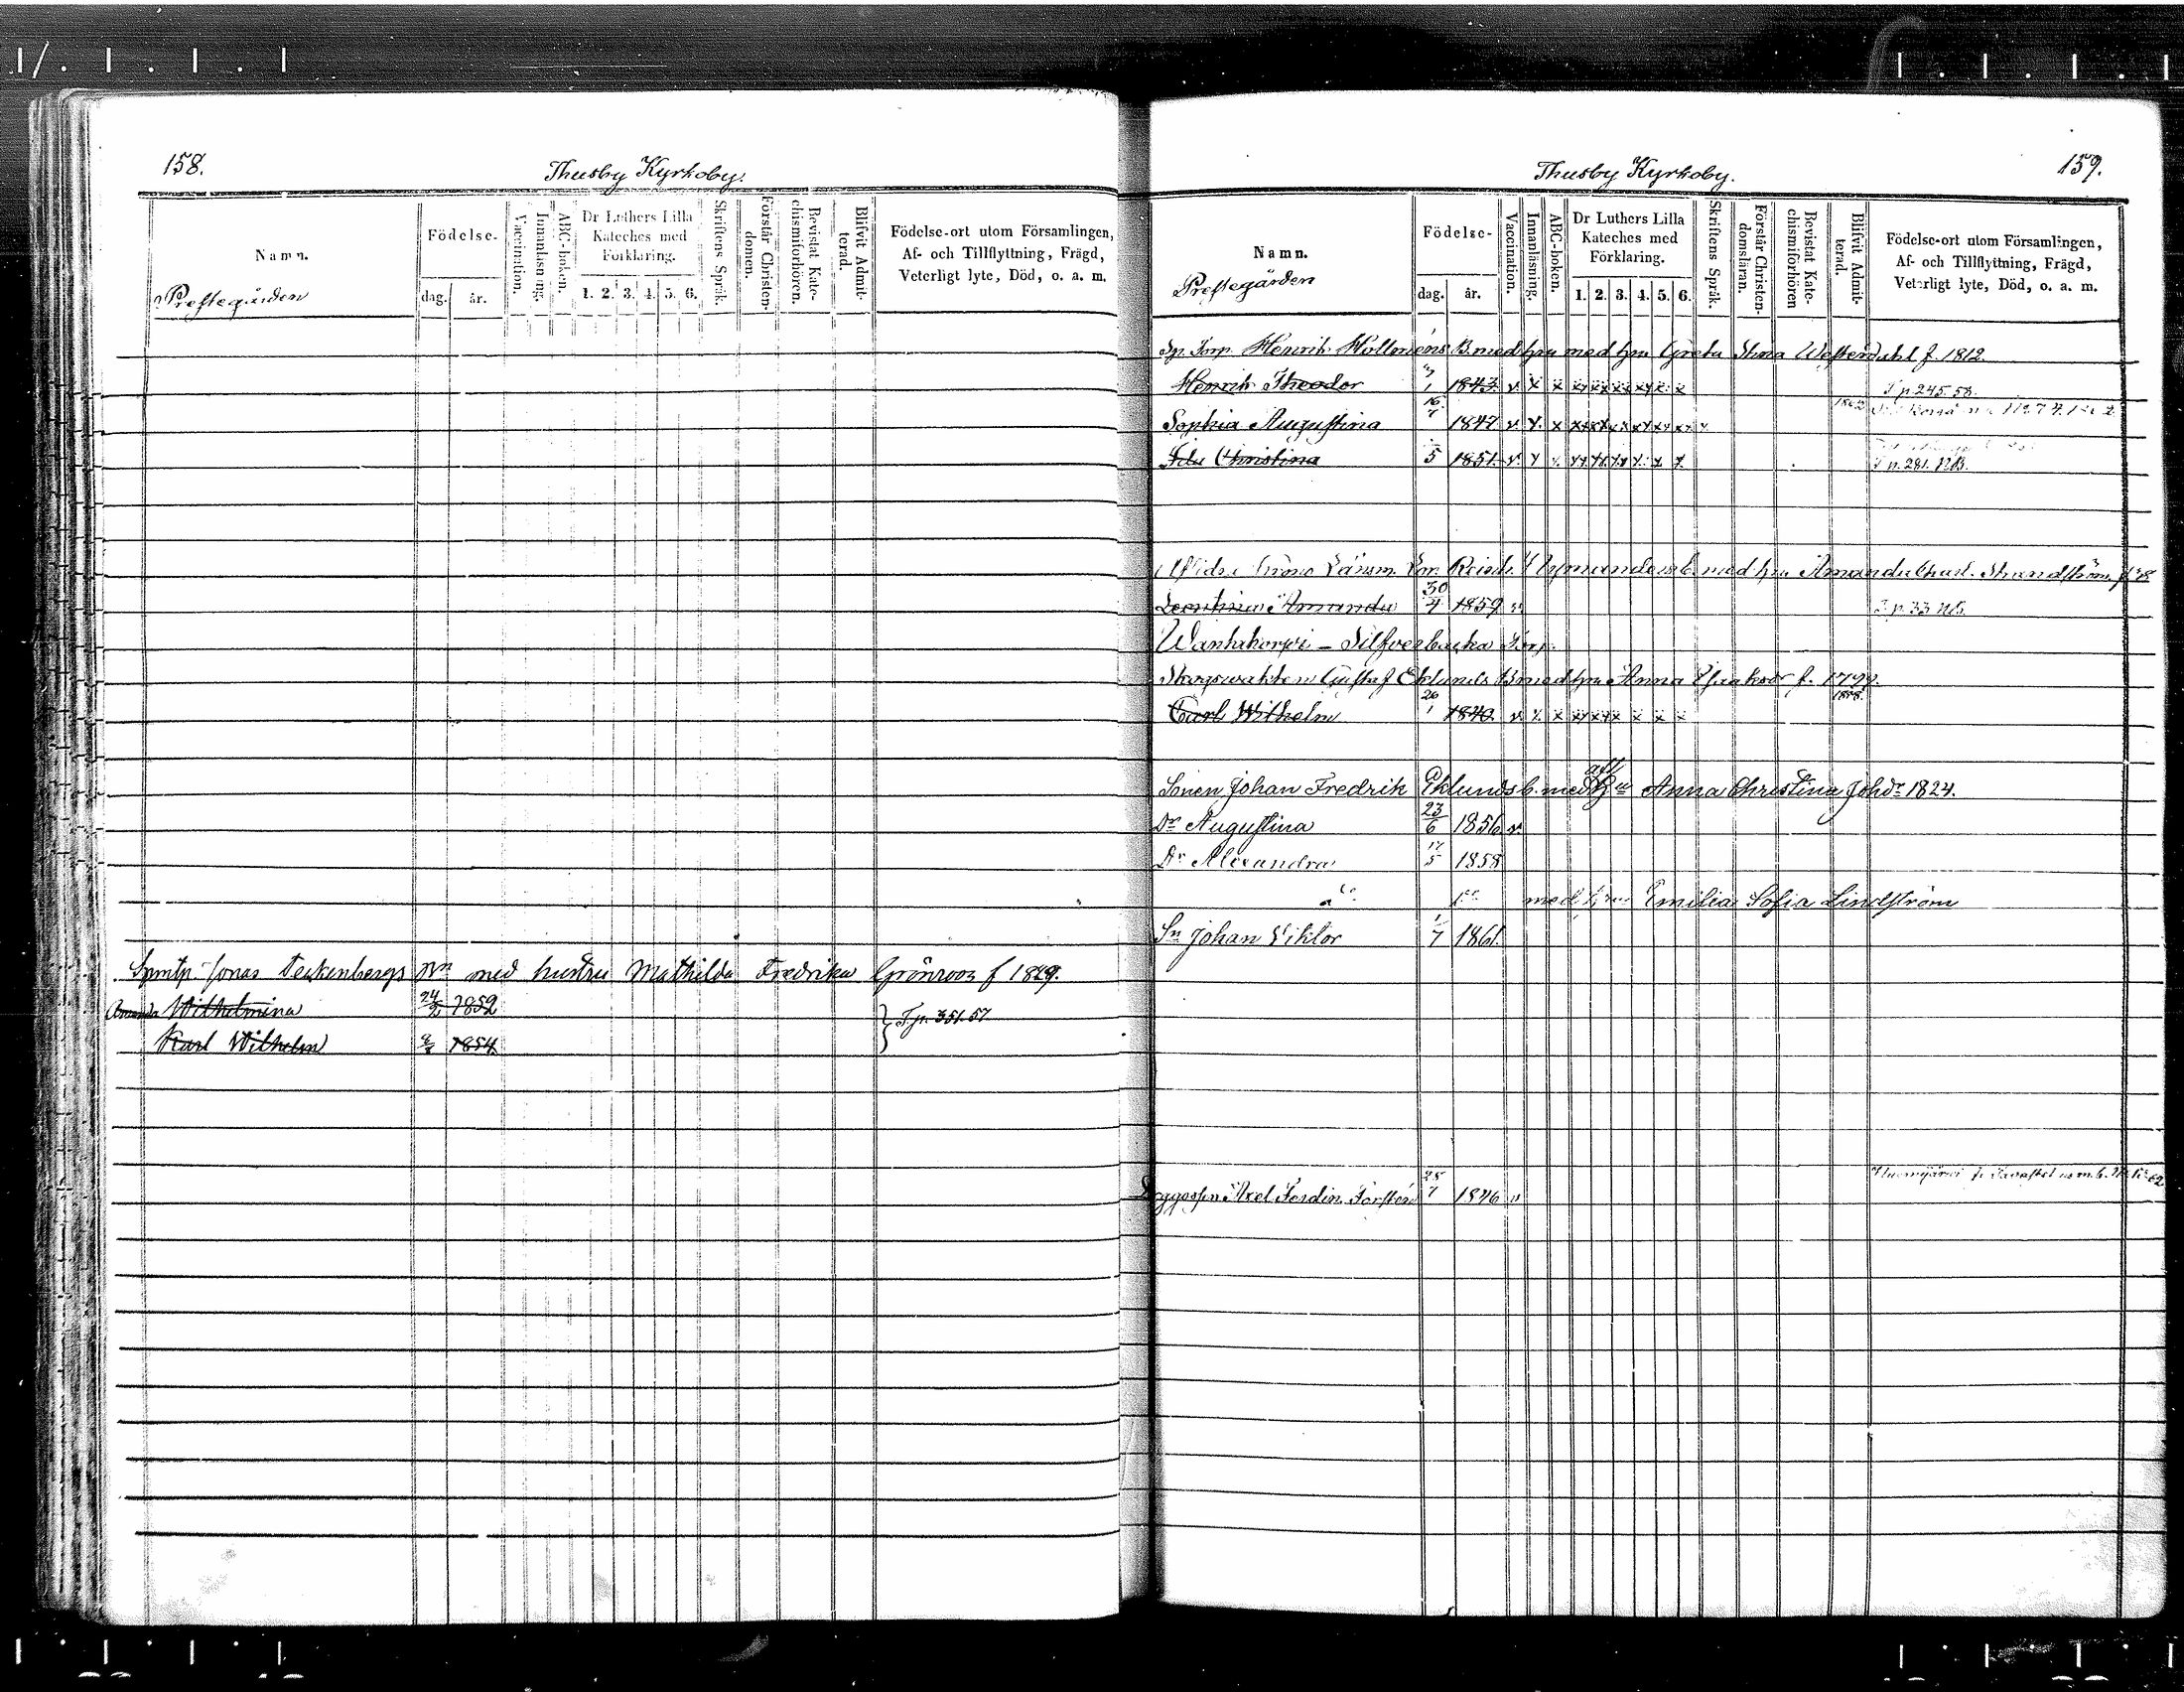 158.
Thusby Kyrkoby.
Namn.
Prestegården
Födelse-
dag. år.
Vaccination.
Innanläsning.
ABC-boken.
Dr Luthers Lilla
Kateches med
Förklaring.
1. 2. 3. 4. 5. 6.
Skriftens Språk.
Förstår Christen-
domen.
Bevistat Kate-
chismiförhören.
Blifvit Admit-
terad.
Födelse-ort utom Församlingen,
Af- och Tillflyttning, Frägd,
Veterligt lyte, Död, o. a. m.
Jonas Teckenbergs med hustru Mathilda Fredrika Grönroos f 1829.
Amanda Wilhelmina 24/2 1852
T p. 351.57
Karl Wilhelm 1854
159.
Thusby Kyrkoby.
Namn.
Prestegården
Födelse-
dag. år.
Vaccination.
Innanläsning.
ABC-boken.
Dr Luthers Lilla
Kateches med
Förklaring.
1. 2. 3. 4. 5. 6.
Skriftens Språk.
Förstår Christen-
domsläran.
Bevistat Kate-
chismiförhören
Blifvit Admit-
terad.
Födelse-ort utom Församlingen,
Af- och Tillflyttning, Frägd,
Veterligt lyte, Död, o. a. m.
Sp. Torp. Henrik Holmens B. med hru med hru Greta Stina Westerdahl f. 1812
Henrik Theodor 1843 v x x x x x x x x T p 245.58.
Sophia Augustina 16/7 1847 v. x. x 1862
Christina 5 1851 v. x T p. 281. NB.
Länsm. b. med hru Amanda Charl. Strandström
Leontina Amanda 30/4 1859 v T p. 33
Wanhakorpi - Silfverbacka Torp.
Skogswakten Gustaf Eklunds B med hru Anna Isaksdr f. 1799.
Carl Wilhelm 26/1 1840 v. x. x 1858.
Sonen Johan Fredrik Eklunds b. med afl. Hu Anna Christina Johdr 1824.
Dr Augustina 23/6 1856 v
Dr Alexandra 17/5 1858
do do med hru Emilia Sofia Lindström
Sn Johan Viktor 1/7 1861.
Axel Ferdin. Forstén 25/7 1846 v